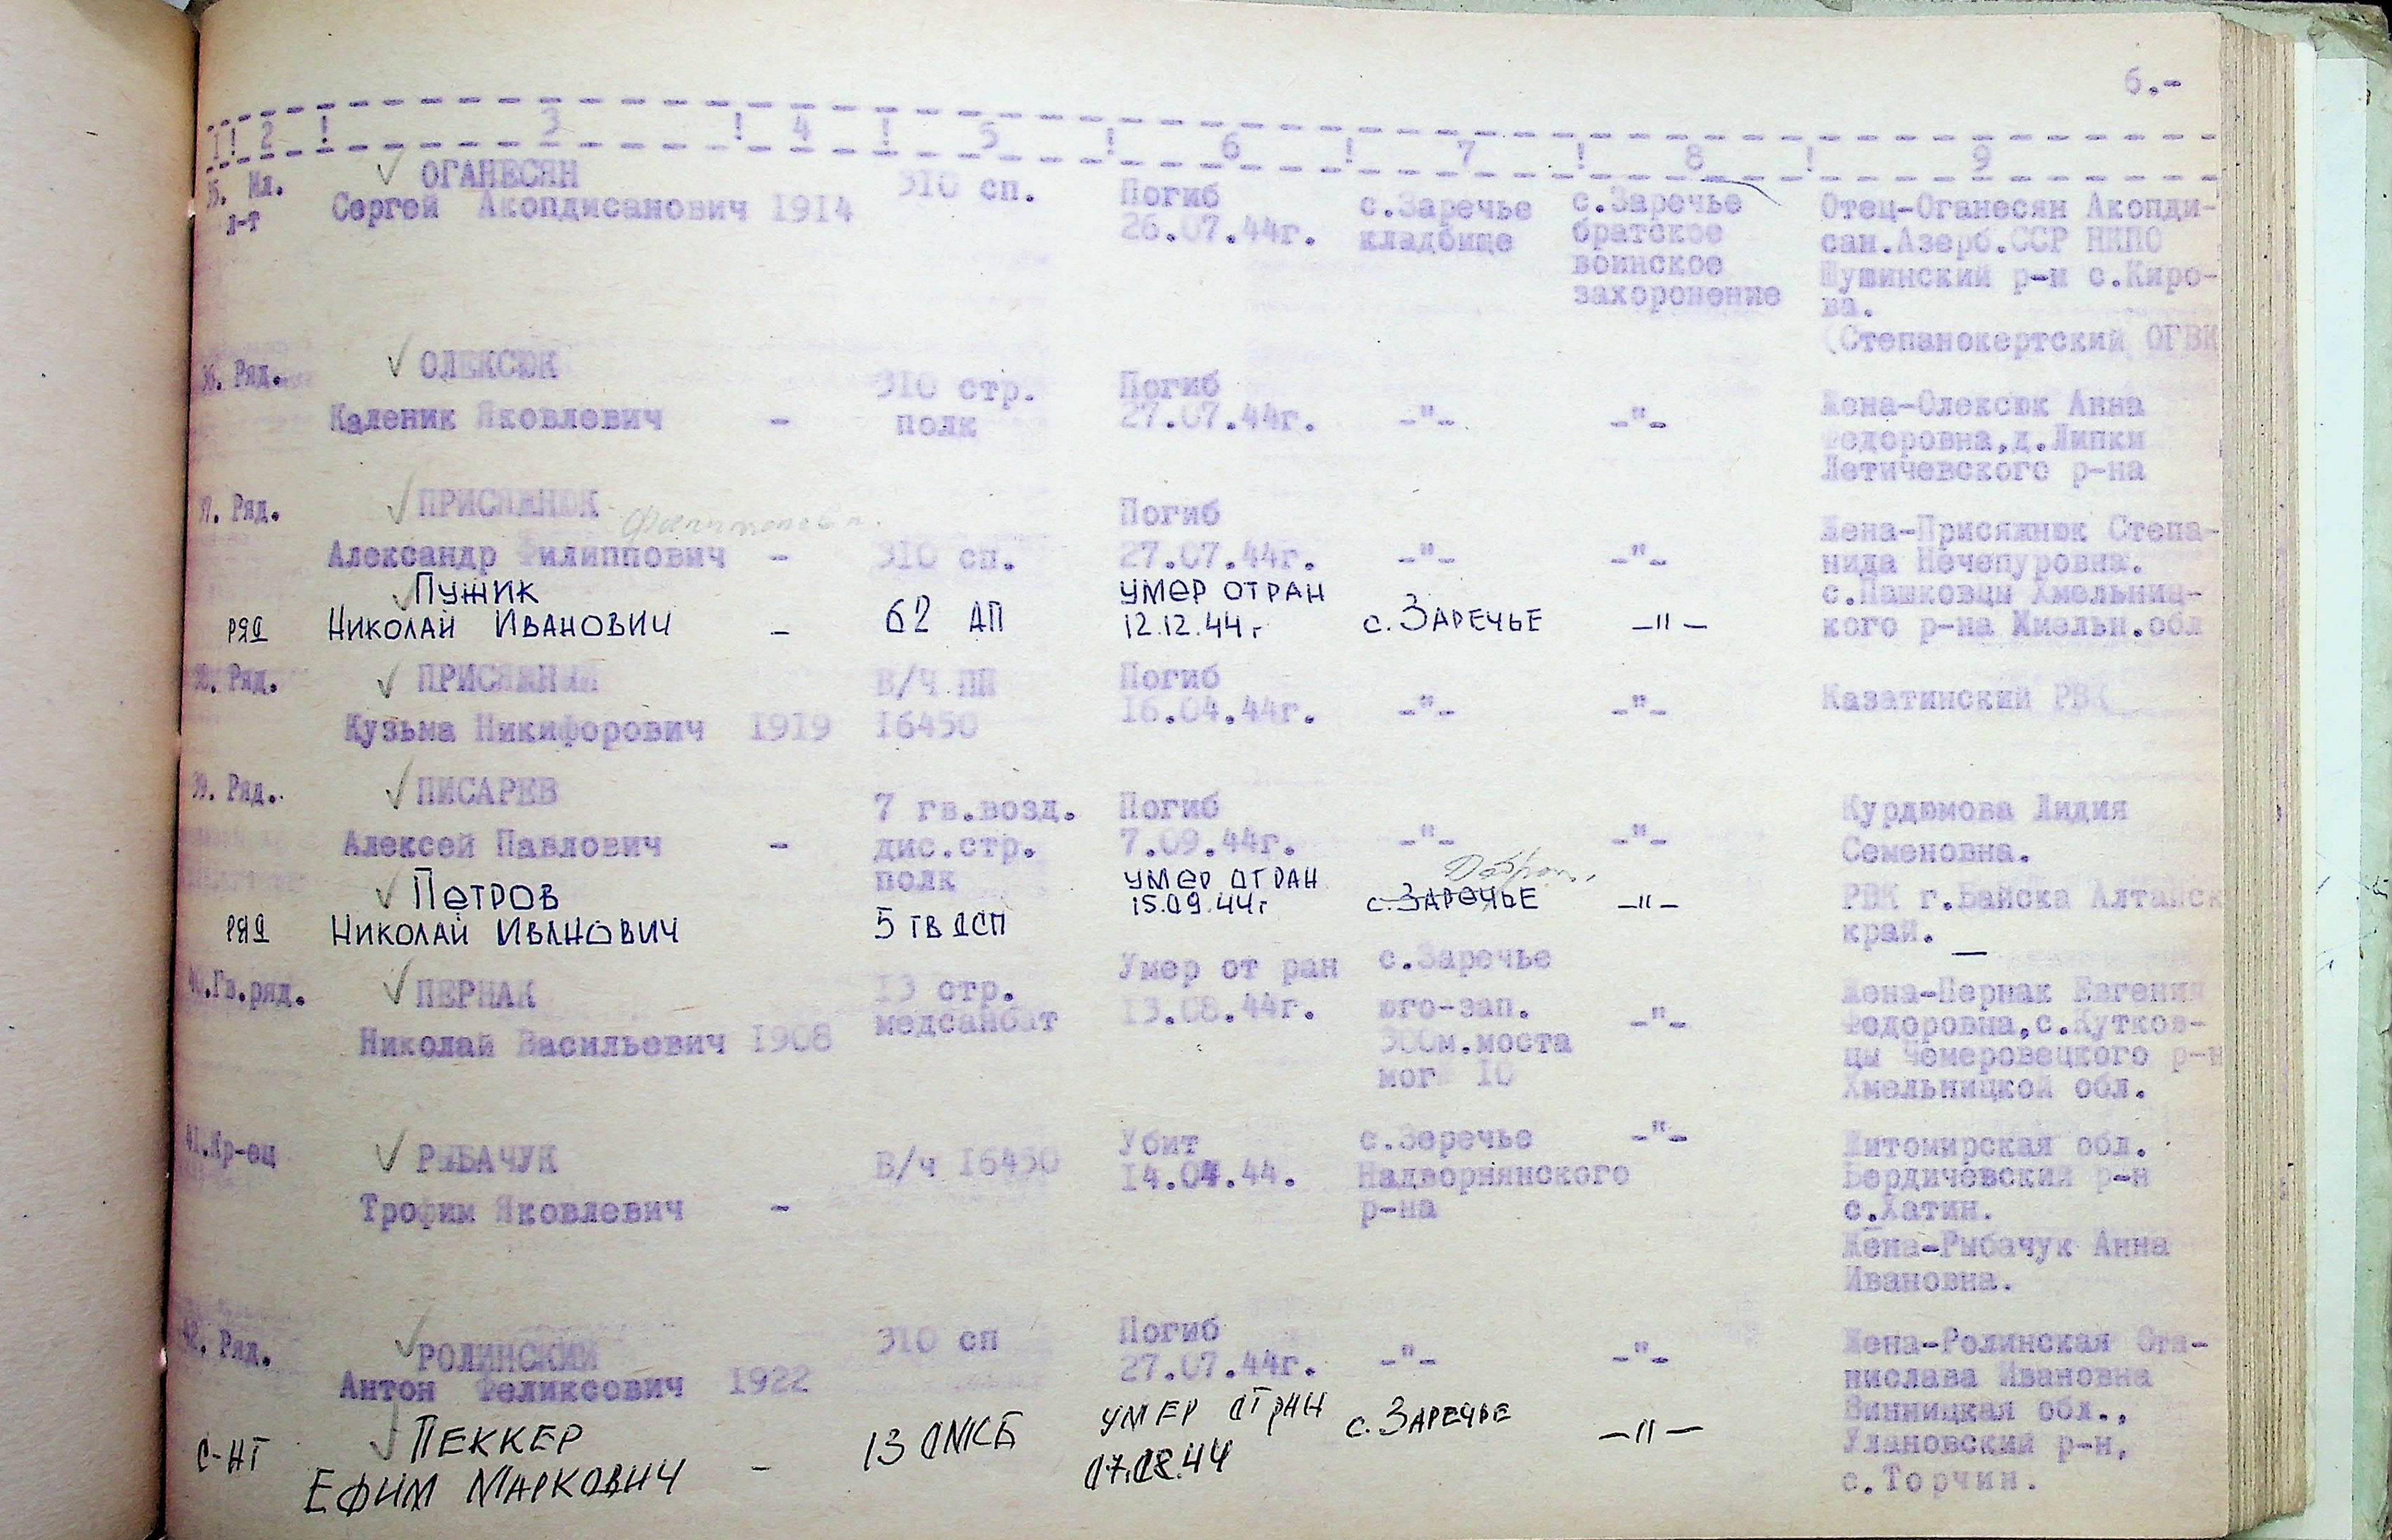 6.-
1! 2 ! 3 ! 4 ! 5 ! 6 ! 7 ! 8 ! 9
35. Мл. л-т
ОГАНЕСЯН
Сергей Акопдисанович 1914
310 сп.
Погиб
26.07.44г.
с.Заречье
кладбище
с.Заречье
братское
воинское
захоронение
Отец-Оганесян Акопди-
сан.Азерб.ССР НКПО
Шушинский р-н с.Киро-
ва.
(Степанокертский ОГВК
36. Ряд.
ОЛЕКСЮК
Каленик Яковлевич -
310 стр.
полк
Погиб
27.07.44г.
-"-
-"-
Жена-Олексюк Анна
Федоровна,д.Липки
Летичевского р-на
37. Ряд.
ПРИСЯЖНЮК
Александр Филиппович -
310 сп.
Погиб
27.07.44г.
-"-
-"-
Жена-Присяжнюк Степа-
нида Нечепуровна.
с.Пашковцы Хмельниц-
кого р-на Хмельн.обл
РЯД
ПУЖИК
НИКОЛАЙ ИВАНОВИЧ -
62 АП
УМЕР ОТ РАН
12.12.44г
с. ЗАРЕЧЬЕ
-"-
38. Ряд.
ПРИСЯЖНЫЙ
Кузьма Никифорович 1919
В/Ч ПП
16450
Погиб
16.04.44г.
-"-
-"-
Казатинский РВК
39. Ряд.
ПИСАРЕВ
Алексей Павлович -
7 гв.возд.
дис.стр.
полк
Погиб
7.09.44г.
-"-
-"-
Курдюмова Лидия
Семеновна.
РВК г.Байска Алтайск
край.
РЯД
ПЕТРОВ
НИКОЛАЙ ИВАНОВИЧ
5 ГВ ДСП
УМЕР ОТ РАН
15.09.44г
с. ЗАРЕЧЬЕ
-"-
—
40.Гв.ряд.
ПЕРНАК
Николай Васильевич 1908
13 стр.
медсанбат
Умер от ран
13.08.44г.
с.Заречье
юго-зап.
300м.моста
мог 10
-"-
Жена-Пернак Евгения
Федоровна,с.Кутков-
цы Чемеровецкого р-н
Хмельницкой обл.
41.Кр-ец
РЫБАЧУК
Трофим Яковлевич -
В/ч 16450
Убит
14.04.44.
с.Зеречье
Надворнянского
р-на
-"-
Житомирская обл.
Бердичевский р-н
с.Хатин.
Жена-Рыбачук Анна
Ивановна.
42. Ряд.
РОЛИНСКИЙ
Антон Феликсович 1922
310 сп
Погиб
27.07.44г.
-"-
-"-
Жена-Ролинская Ста-
нислава Ивановна
Винницкая обл.,
Улановский р-н,
с.Торчин.
С-НТ
ПЕККЕР
ЕФИМ МАРКОВИЧ -
13 ОМСБ
УМЕР ОТ РАН
07.08.44
с. ЗАРЕЧЬЕ
-"-